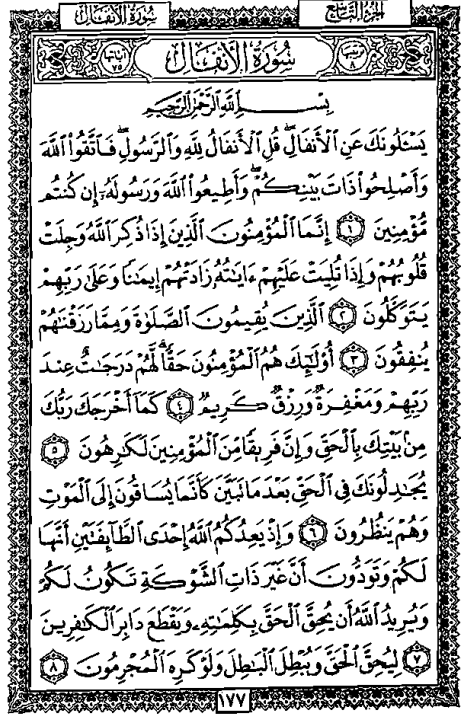 سُورَةُ الأَنفَال
الجُزْءُ التَّاسِعُ
ترتيبها ٨
سُورَةُ الأَنفَالِ
آياتها ٧٥
بِسْمِ ٱللَّهِ ٱلرَّحْمَٰنِ ٱلرَّحِيمِ
يَسْـَٔلُونَكَ عَنِ ٱلْأَنفَالِ ۖ قُلِ ٱلْأَنفَالُ لِلَّهِ وَٱلرَّسُولِ ۖ فَٱتَّقُوا۟ ٱللَّهَ
وَأَصْلِحُوا۟ ذَاتَ بَيْنِكُمْ ۖ وَأَطِيعُوا۟ ٱللَّهَ وَرَسُولَهُۥٓ إِن كُنتُم
مُّؤْمِنِينَ ١ إِنَّمَا ٱلْمُؤْمِنُونَ ٱلَّذِينَ إِذَا ذُكِرَ ٱللَّهُ وَجِلَتْ
قُلُوبُهُمْ وَإِذَا تُلِيَتْ عَلَيْهِمْ ءَايَٰتُهُۥ زَادَتْهُمْ إِيمَٰنًا وَعَلَىٰ رَبِّهِمْ
يَتَوَكَّلُونَ ٢ ٱلَّذِينَ يُقِيمُونَ ٱلصَّلَوٰةَ وَمِمَّا رَزَقْنَٰهُمْ
يُنفِقُونَ ٣ أُو۟لَٰٓئِكَ هُمُ ٱلْمُؤْمِنُونَ حَقًّا ۚ لَّهُمْ دَرَجَٰتٌ عِندَ
رَبِّهِمْ وَمَغْفِرَةٌ وَرِزْقٌ كَرِيمٌ ٤ كَمَآ أَخْرَجَكَ رَبُّكَ
مِنۢ بَيْتِكَ بِٱلْحَقِّ وَإِنَّ فَرِيقًا مِّنَ ٱلْمُؤْمِنِينَ لَكَٰرِهُونَ ٥
يُجَٰدِلُونَكَ فِى ٱلْحَقِّ بَعْدَ مَا تَبَيَّنَ كَأَنَّمَا يُسَاقُونَ إِلَى ٱلْمَوْتِ
وَهُمْ يَنظُرُونَ ٦ وَإِذْ يَعِدُكُمُ ٱللَّهُ إِحْدَى ٱلطَّآئِفَتَيْنِ أَنَّهَا
لَكُمْ وَتَوَدُّونَ أَنَّ غَيْرَ ذَاتِ ٱلشَّوْكَةِ تَكُونُ لَكُمْ
وَيُرِيدُ ٱللَّهُ أَن يُحِقَّ ٱلْحَقَّ بِكَلِمَٰتِهِۦ وَيَقْطَعَ دَابِرَ ٱلْكَٰفِرِينَ
٧ لِيُحِقَّ ٱلْحَقَّ وَيُبْطِلَ ٱلْبَٰطِلَ وَلَوْ كَرِهَ ٱلْمُجْرِمُونَ ٨
١٧٧